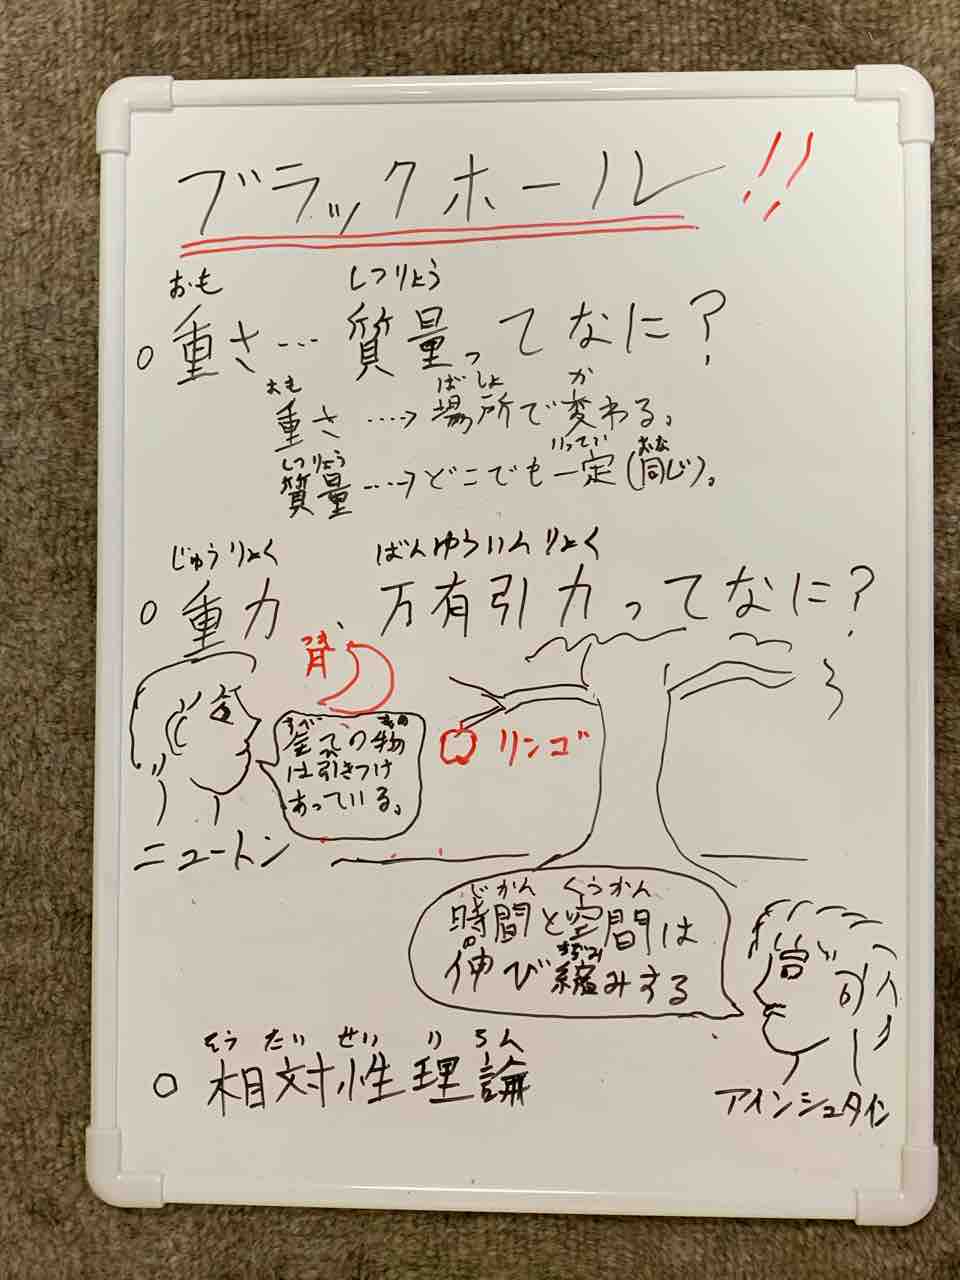 ブラックホール!!
おも しつりょう
○重さ…質量ってなに?
おも ばしょ か
重さ…→場所で変わる。
しつりょう いってい おな
質量…→どこでも一定(同じ)。
じゅうりょく ばんゆういんりょく
○重力、万有引力ってなに?
つき
月
すべ もの
全ての物
は引きつけ
あっている。
リンゴ
ニュートン
じかん くうかん
時間と空間は
の ちぢ
伸び縮みする
そうたいせいりろん
○相対性理論
アインシュタイン